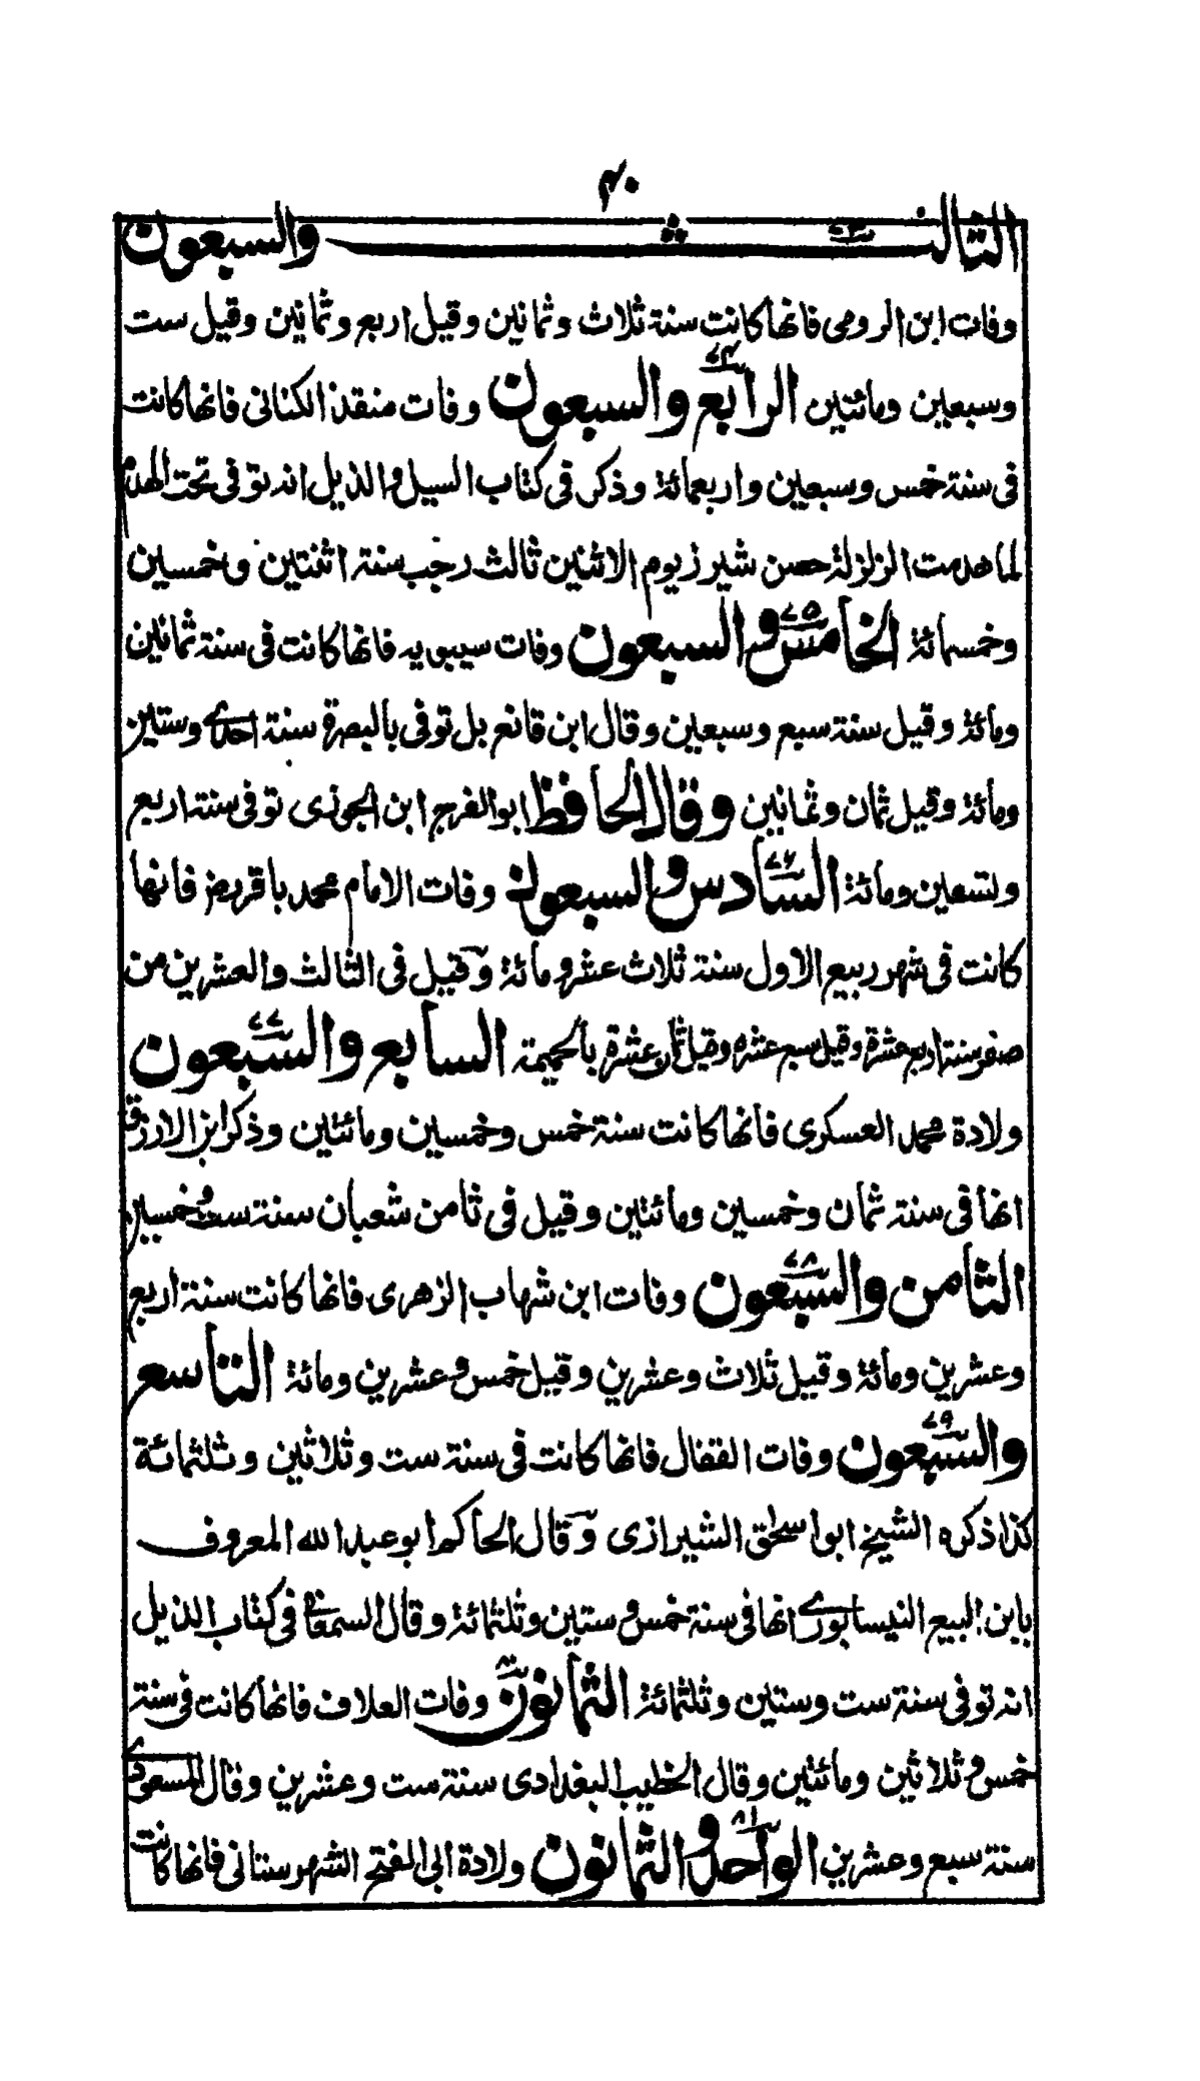 ۴۰
الثالث ۷۳ والسبعون
وفات ابن الرومی فانها کانت سنة ثلاث وثمانین وقیل اربع وثمانین وقیل ست
وسبعین ومائتین الرابع ۷۴ والسبعون وفات منقذ الکنانی فانها کانت
فی سنة خمس وسبعین واربعمائة وذکر فی کتاب السیل والذیل انه توفی تحت الهدم
لما هدمت الزلزلة حصن شیرز یوم الاثنین ثالث رجب سنة اثنتین وخمسین
وخمسمائة الخامس ۷۵ والسبعون وفات سیبویه فانها کانت فی سنة ثمانین
ومائة وقیل سنة سبع وسبعین وقال ابن قانع بل توفی بالبصرة سنة احدی وستین
ومائة وقیل ثمان وثمانین وقال الحافظ ابو الفرج ابن الجوزی توفی سنة اربع
وتسعین ومائة السادس ۷۶ والسبعون وفات الامام محمد باقر رض فانها
کانت فی شهر ربیع الاول سنة ثلاث عشر ومائة وقیل فی الثالث والعشرین من
صفر سنة اربع عشرة وقیل سبع عشره وقیل ثمان عشرة بالحمیمة السابع ۷۷ والسبعون
ولادة محمد العسکری فانها کانت سنة خمس وخمسین ومائتین وذکر ابن الازرق
انها فی سنة ثمان وخمسین ومائتین وقیل فی ثامن شعبان سنة ست وخمسین
الثامن ۷۸ والسبعون وفات ابن شهاب الزهری فانها کانت سنة اربع
وعشرین ومائة وقیل ثلاث وعشرین وقیل خمس وعشرین ومائة التاسع
۷۹ والسبعون وفات القفال فانها کانت فی سنة ست وثلاثین وثلثمائة
کذا ذکره الشیخ ابو اسحٰق الشیرازی وقال الحاکم ابو عبد الله المعروف
بابن البیع النیسابوری انها فی سنة خمس وستین وثلثمائة وقال السمعانی فی کتاب الذیل
انه توفی سنة ست وستین وثلثمائة الثمانون ۸۰ وفات العلاف فانها کانت فی سنة
خمس وثلاثین ومائتین وقال الخطیب البغدادی سنة ست وعشرین وقال المسعودی
سنة سبع وعشرین الواحد ۸۱ والثمانون ولادة ابی الفتح الشهرستانی فانها کانت